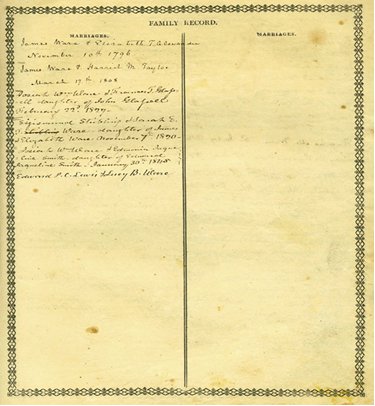 FAMILY RECORD.
MARRIAGES.
MARRIAGES.
James Ware & Elizabeth T Alexander
November 10th 1796
James Ware & Harriet M. Taylor
March 17th 1808
Josiah Wm Ware & Frances T. Glass
ell daughter of John Glassell
February 22d 1827
Sigismund Stribling & Sarah E.
Ware daughter of James
& Elizabeth Ware November 7th
Josiah Wm Ware & Edmonia Jaque
line Smith daughter of Edward
Jaqueline Smith January 30th 1845
Edward P. C. Lewis & Lucy B. Ware